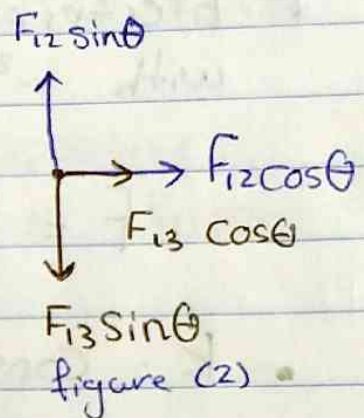 F₁₂ sinθ
F₁₂cosθ
F₁₃ cosθ
F₁₃ sinθ
figure (2)